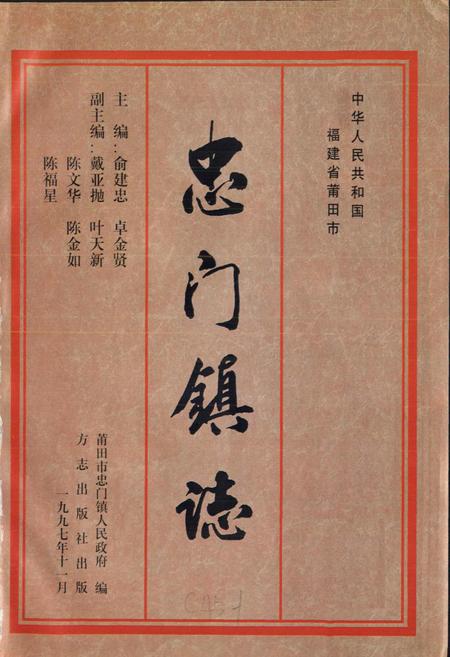 中华人民共和国
福建省莆田市
忠门镇誌
主 编：俞建忠 卓金贤
副主编：戴亚抛 叶天新
陈文华 陈金如
陈福星
莆田市忠门镇人民政府 编
方志出版社出版
一九九七年十一月